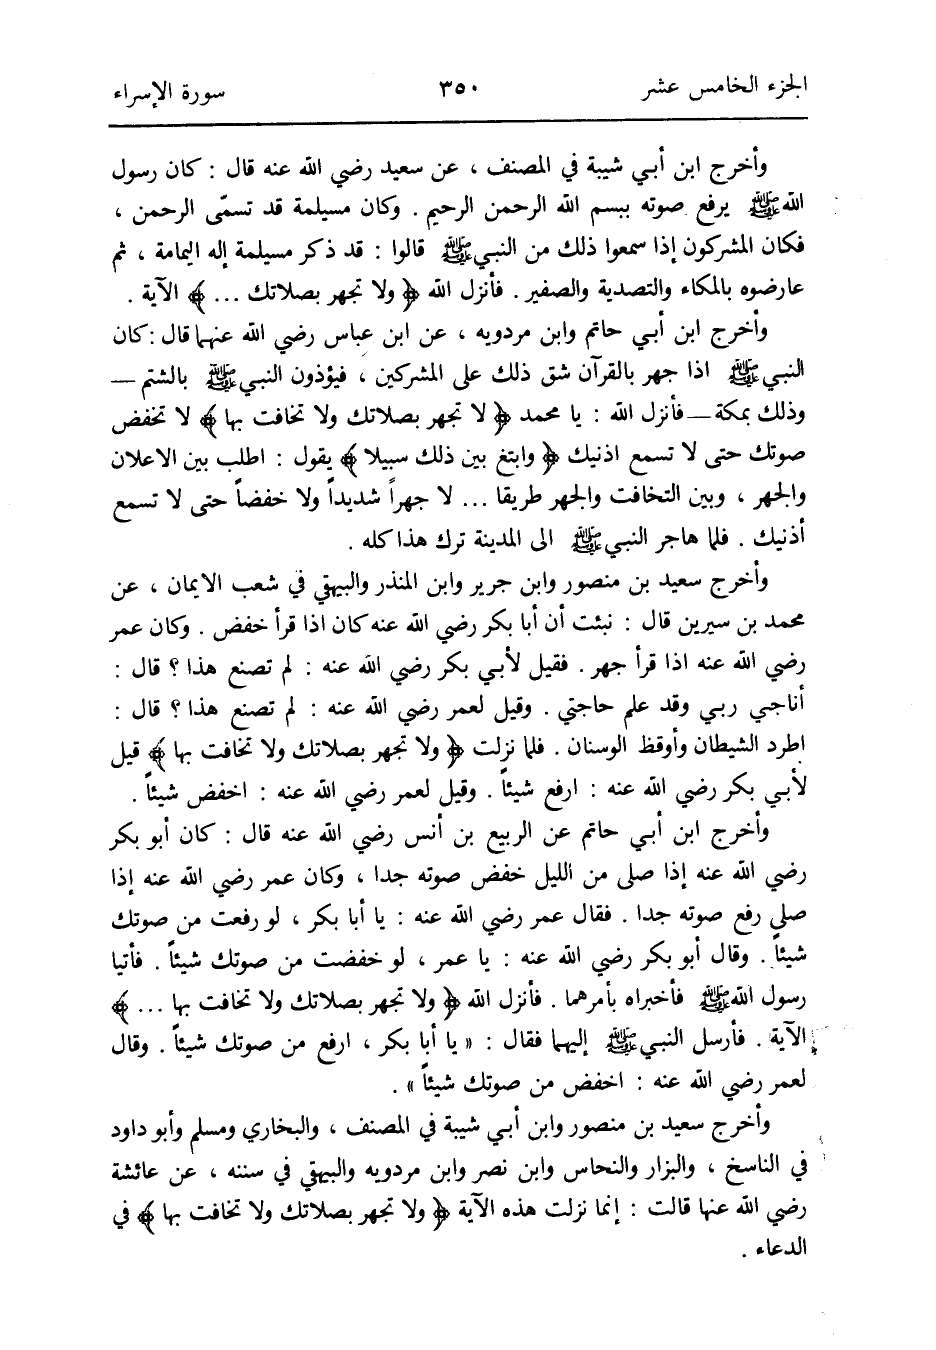 الجزء الخامس عشر ٣٥٠ سورة الإسراء
وأخرج ابن أبي شيبة في المصنف ، عن سعيد رضي الله عنه قال : كان رسول
الله ﷺ يرفع صوته ببسم الله الرحمن الرحيم . وكان مسيلمة قد تسمّى الرحمن ،
فكان المشركون إذا سمعوا ذلك من النبي ﷺ قالوا : قد ذكر مسيلمة إله اليمامة ، ثم
عارضوه بالمكاء والتصدية والصفير . فأنزل الله ﴿ ولا تجهر بصلاتك ... ﴾ الآية .
وأخرج ابن أبي حاتم وابن مردويه ، عن ابن عباس رضي الله عنهما قال : كان
النبي ﷺ اذا جهر بالقرآن شق ذلك على المشركين ، فيؤذون النبي ﷺ بالشتم —
وذلك بمكة — فأنزل الله : يا محمد ﴿ لا تجهر بصلاتك ولا تخافت بها ﴾ لا تخفض
صوتك حتى لا تسمع اذنيك ﴿ وابتغ بين ذلك سبيلا ﴾ يقول : اطلب بين الاعلان
والجهر ، وبين التخافت والجهر طريقا ... لا جهراً شديداً ولا خفضاً حتى لا تسمع
أذنيك . فلما هاجر النبي ﷺ الى المدينة ترك هذا كله .
وأخرج سعيد بن منصور وابن جرير وابن المنذر والبيهقي في شعب الايمان ، عن
محمد بن سيرين قال : نبئت أن أبا بكر رضي الله عنه كان اذا قرأ خفض . وكان عمر
رضي الله عنه اذا قرأ جهر . فقيل لأبي بكر رضي الله عنه : لم تصنع هذا ؟ قال :
أناجي ربي وقد علم حاجتي . وقيل لعمر رضي الله عنه : لم تصنع هذا ؟ قال :
اطرد الشيطان وأوقظ الوسنان . فلما نزلت ﴿ ولا تجهر بصلاتك ولا تخافت بها ﴾ قيل
لأبي بكر رضي الله عنه : ارفع شيئاً . وقيل لعمر رضي الله عنه : اخفض شيئاً .
وأخرج ابن أبي حاتم عن الربيع بن أنس رضي الله عنه قال : كان أبو بكر
رضي الله عنه إذا صلى من الليل خفض صوته جدا ، وكان عمر رضي الله عنه إذا
صلى رفع صوته جدا . فقال عمر رضي الله عنه : يا أبا بكر ، لو رفعت من صوتك
شيئاً . وقال أبو بكر رضي الله عنه : يا عمر ، لو خفضت من صوتك شيئاً . فأتيا
رسول الله ﷺ فأخبراه بأمرهما . فأنزل الله ﴿ ولا تجهر بصلاتك ولا تخافت بها ... ﴾
الآية . فأرسل النبي ﷺ إليهما فقال : « يا أبا بكر ، ارفع من صوتك شيئاً . وقال
لعمر رضي الله عنه : اخفض من صوتك شيئاً » .
وأخرج سعيد بن منصور وابن أبي شيبة في المصنف ، والبخاري ومسلم وأبو داود
في الناسخ ، والبزار والنحاس وابن نصر وابن مردويه والبيهقي في سننه ، عن عائشة
رضي الله عنها قالت : إنما نزلت هذه الآية ﴿ ولا تجهر بصلاتك ولا تخافت بها ﴾ في
الدعاء .